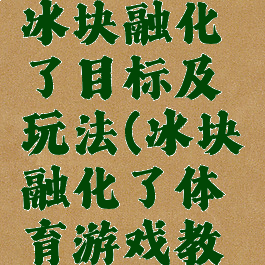 冰块融化
了目标及
玩法(冰块
融化了体
育游戏教